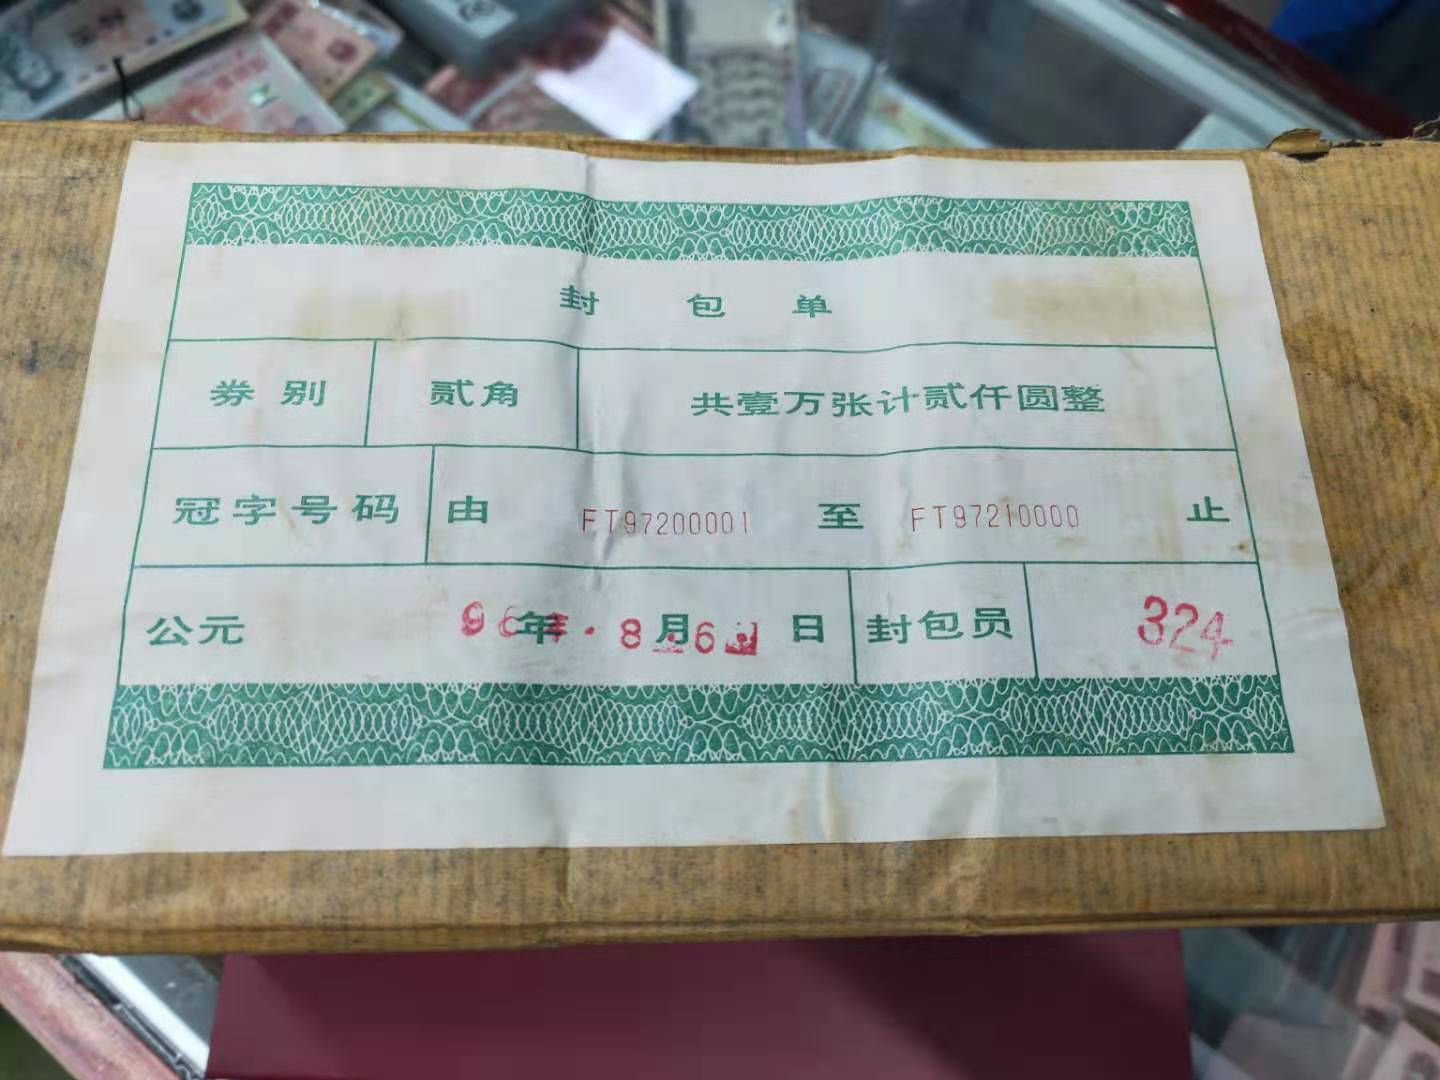 封包单
券别 贰角 共壹万张计贰仟圆整
冠字号码 由 FT97200001 至 FT97210000 止
公元 96年.8月6日 封包员 324